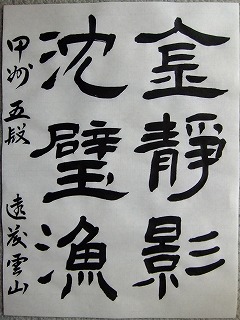 金靜影
沈璧漁
甲州 五段 遠藤雲山